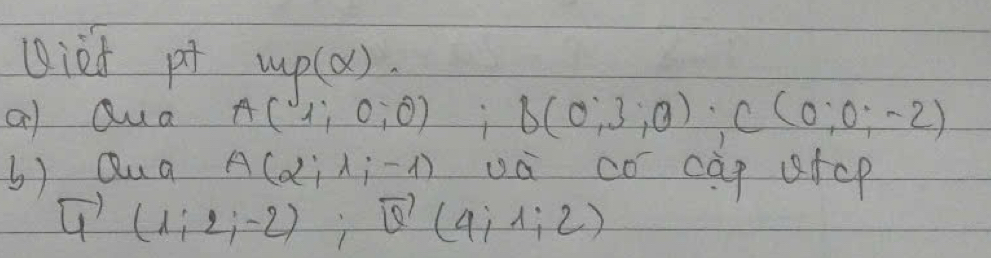 Viết pt mp(α).
a) Qua A(1; 0;0) ; B(0;3;0) ; C(0;0;-2)
b) Qua A(2;1;-1) và có cặp vtcp
(1;2;-2) ; (4;1;2)